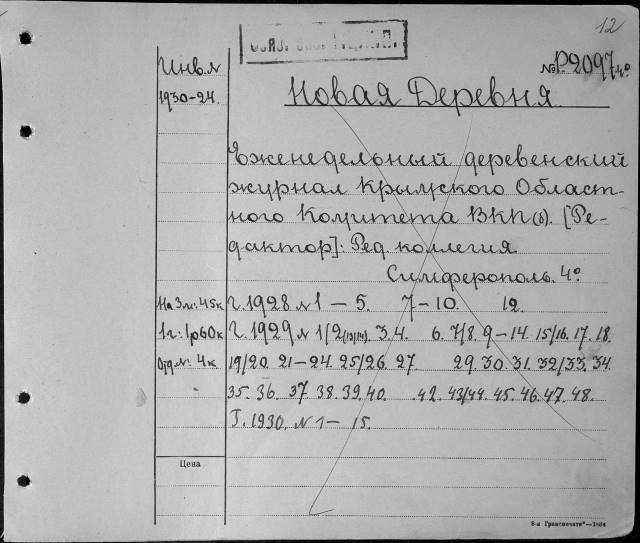 12
№ Р.2097 4°
Инв. №
1930-24.
Новая Деревня
Еженедельный деревенский
журнал Крымского Област-
ного Комитета ВКП(б). [Ре-
дактор]: Ред. коллегия
Симферополь. 4°
На 3 м: 45к Г. 1928 № 1 – 5. 7 – 10. 12.
1 г: 1р60к Г. 1929 № 1/2 (13/14). 3. 4. 6. 7/8. 9 – 14. 15/16. 17. 18.
Отд. №: 4к 19/20. 21 – 24. 25/26. 27 29. 30. 31. 32/33. 34.
35. 36. 37 38. 39. 40. 42. 43/44. 45. 46. 47. 48.
Г. 1930. № 1 – 15.
Цена